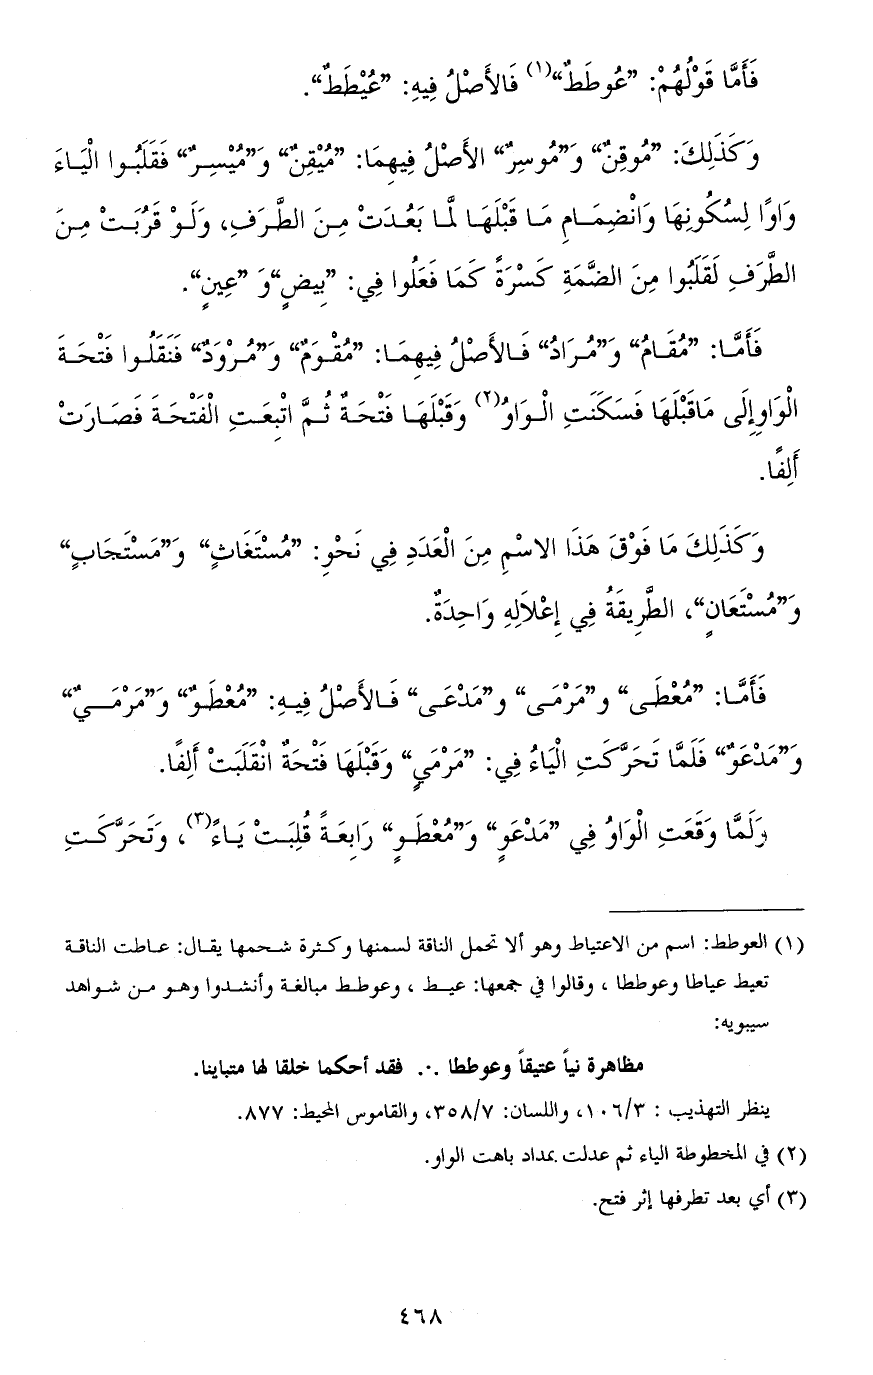 فَأَمَّا قَوْلُهُمْ: ”عُوطَطٌ“(١) فَالأَصْلُ فِيهِ: ”عُيْطَطٌ“.
وَكَذَلِكَ: ”مُوقِنٌ“ وَ”مُوسِرٌ“ الأَصْلُ فِيهِمَا: ”مُيْقِنٌ“ وَ”مُيْسِرٌ“ فَقَلَبُوا الْيَاءَ
وَاوًا لِسُكُونِهَا وَانْضِمَامِ مَا قَبْلَهَا لَمَّا بَعُدَتْ مِنَ الطَّرَفِ، وَلَوْ قَرُبَتْ مِنَ
الطَّرَفِ لَقَلَبُوا مِنَ الضَّمَةِ كَسْرَةً كَمَا فَعَلُوا فِي: ”بِيضٍ“وَ ”عِينٍ“.
فَأَمَّا: ”مُقَامٌ“ وَ”مُرَادٌ“ فَالأَصْلُ فِيهِمَا: ”مُقْوَمٌ“ وَ”مُرْوَدٌ“ فَنَقَلُوا فَتْحَةَ
الْوَاوِإِلَى مَاقَبْلَهَا فَسَكَنَتِ الْوَاوُ(٢) وَقَبْلَهَا فَتْحَةٌ ثُمَّ اتْبِعَتِ الْفَتْحَةَ فَصَارَتْ
أَلِفًا.
وَكَذَلِكَ مَا فَوْقَ هَذَا الاسْمِ مِنَ الْعَدَدِ فِي نَحْوِ: ”مُسْتَغَاثٍ“ وَ”مَسْتَجَابٍ“
وَ”مُسْتَعَانٍ“، الطَّرِيقَةُ فِي إِعْلاَلِهِ وَاحِدَةٌ.
فَأَمَّا: ”مُعْطَى“ و”مَرْمَى“ و”مَدْعَى“ فَالأَصْلُ فِيهِ: ”مُعْطَوٌ“ وَ”مَرْمَيٌ“
وَ”مَدْعَوٌ“ فَلَمَّا تَحَرَّكَتِ الْيَاءُ فِي: ”مَرْمَيٍ“ وَقَبْلَهَا فَتْحَةٌ انْقَلَبَتْ أَلِفًا.
وَلَمَّا وَقَعَتِ الْوَاوُ فِي ”مَدْعَوٍ“ وَ”مُعْطَوٍ“ رَابِعَةً قُلِبَتْ يَاءً(٣)، وَتَحَرَّكَتِ
(١) العوطط: اسم من الاعتياط وهو ألا تحمل الناقة لسمنها وكثرة شحمها يقال: عاطت الناقة
تعيط عياطا وعوططا ، وقالوا في جمعها: عيط ، وعوطط مبالغة وأنشدوا وهو من شواهد
سيبويه:
مظاهرة نياً عتيقاً وعوططا .٠. فقد أحكما خلقا لها متباينا.
ينظر التهذيب : ١٠٦/٣، واللسان: ٣٥٨/٧، والقاموس المحيط: ٨٧٧.
(٢) في المخطوطة الياء ثم عدلت بمداد باهت الواو.
(٣) أي بعد تطرفها إثر فتح.
٤٦٨